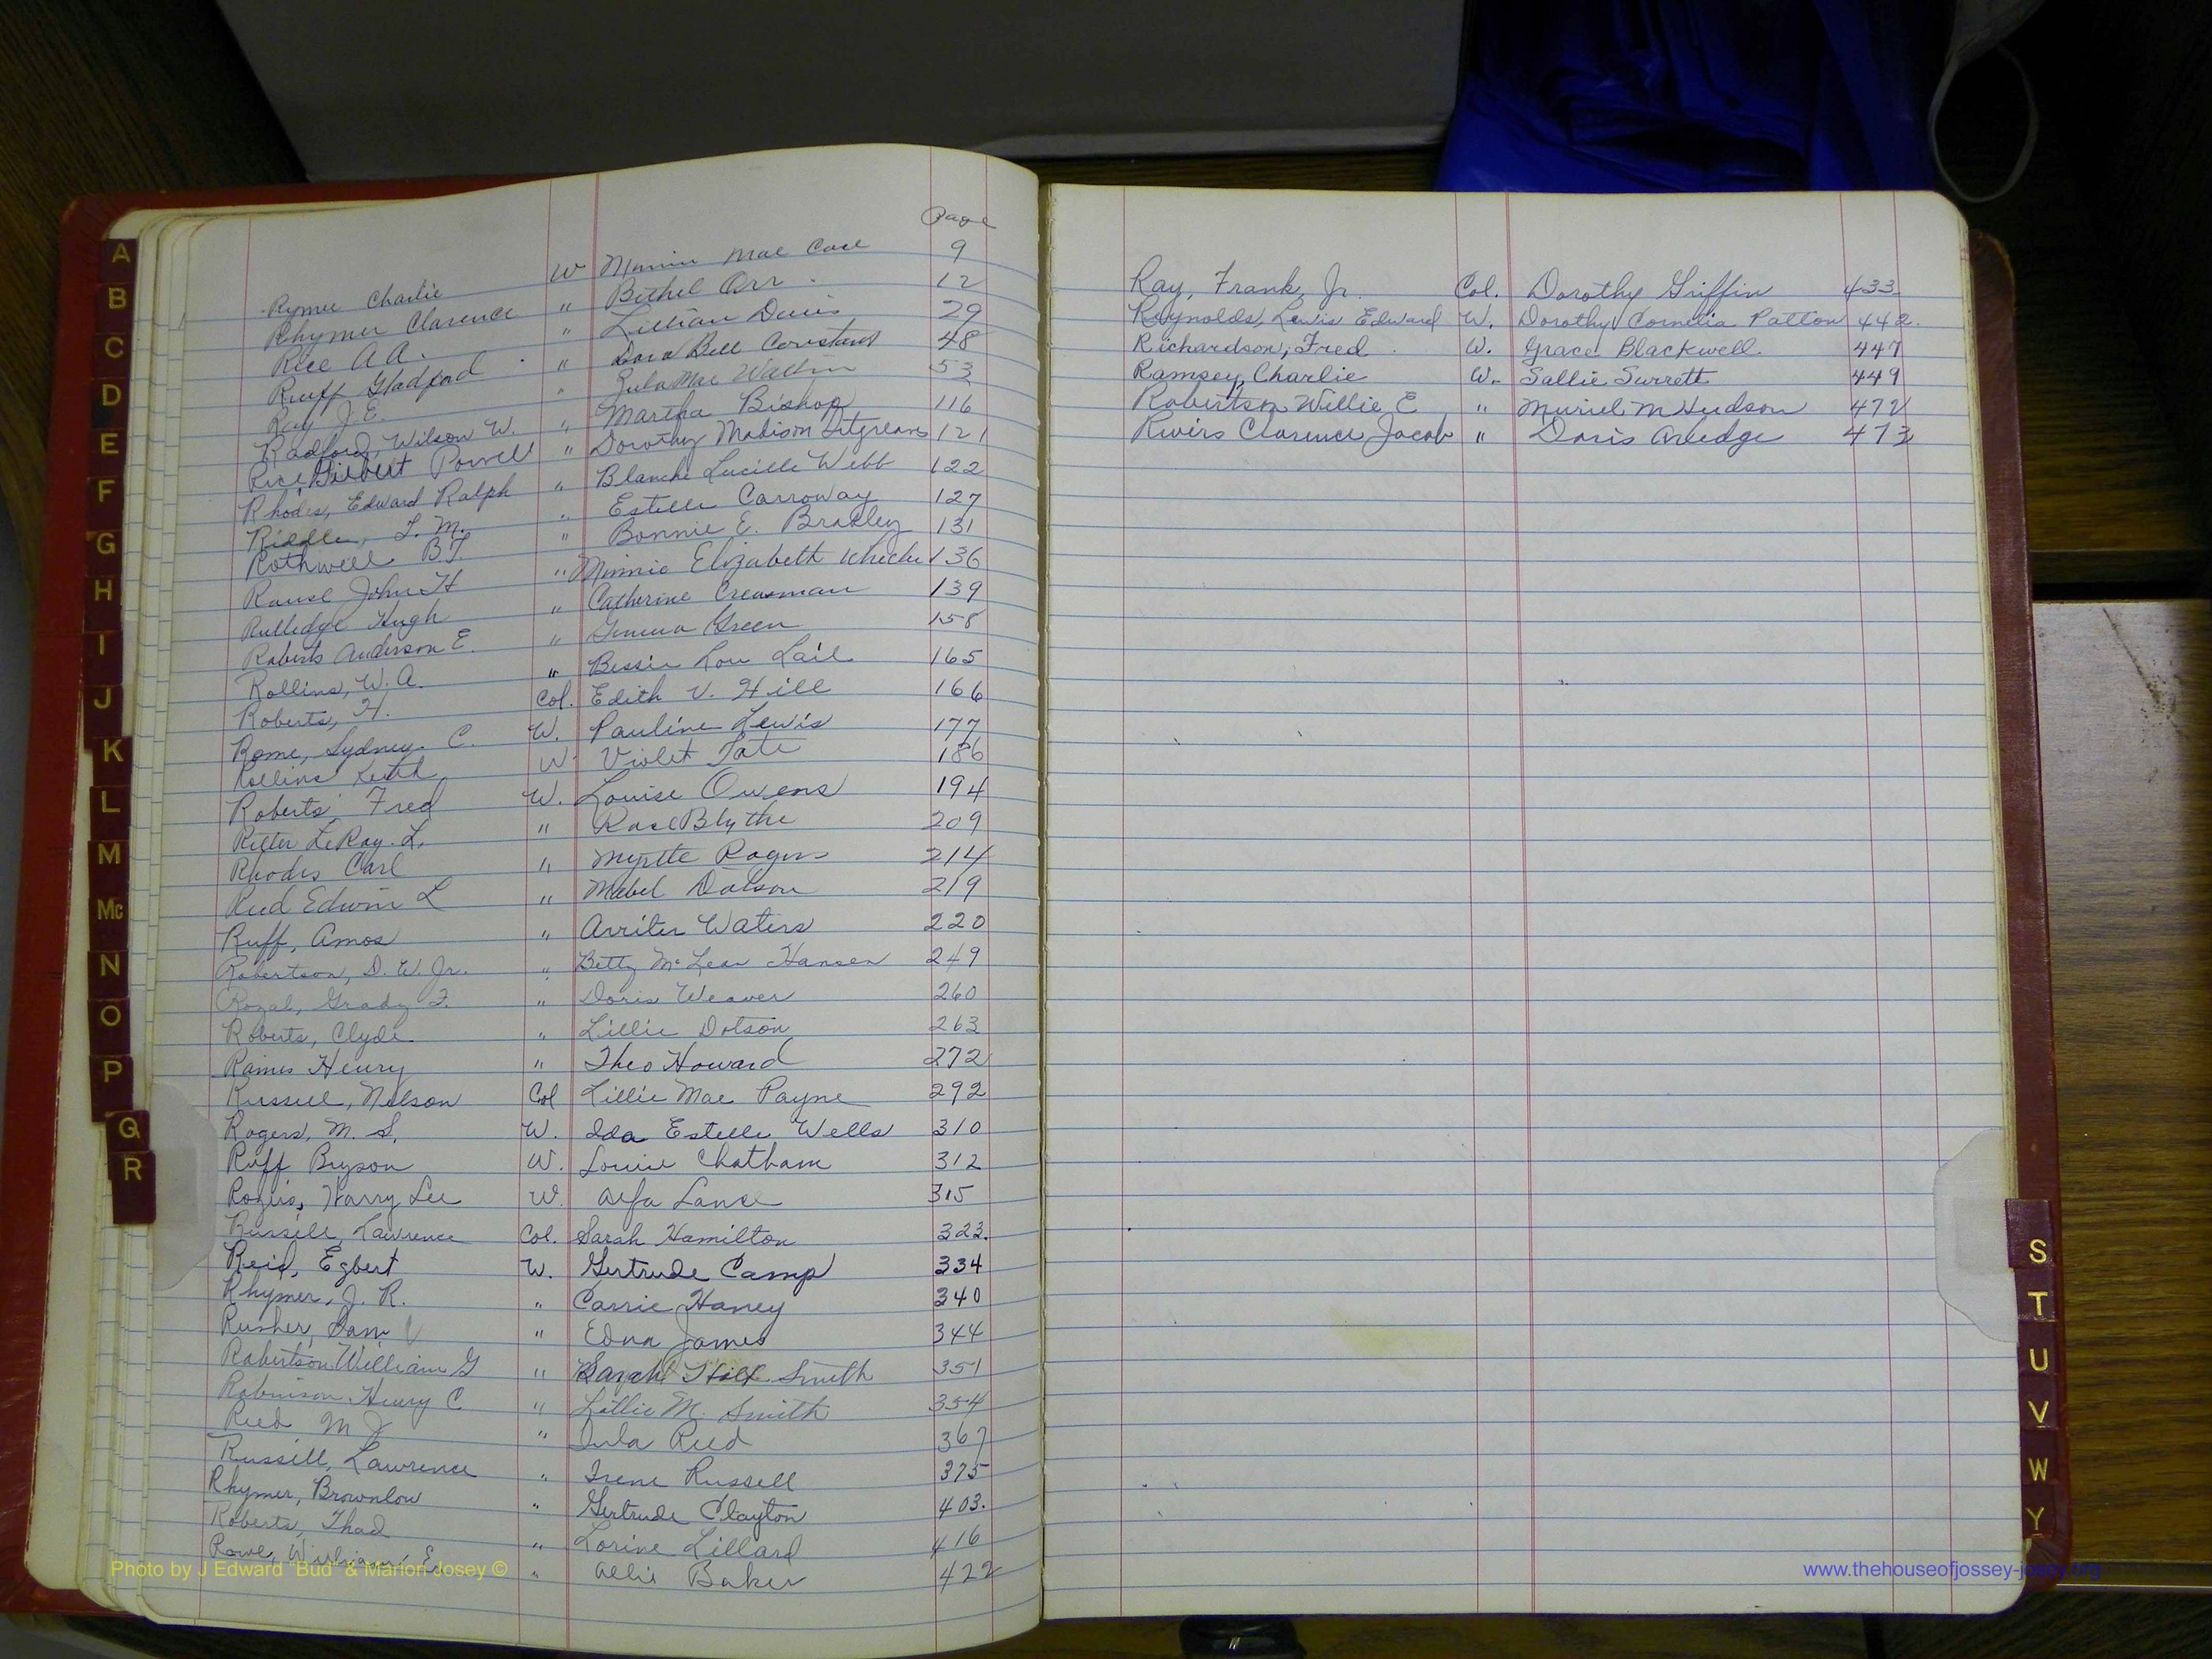 Page
Rymer Charlie W Minnie Mae Case 9
Rhymer Clarence " Bethel Orr 12
Rice A A. " Lillian Davis 29
Ruff Gladford " Dora Bell 48
Ray J. E. " Zula Mae 53
Radford, Wilson W. " Martha Bishop 116
Rice Gilbert Powell " Dorothy Madison 121
Rhodes, Edward Ralph " Blanche Lucille Webb 122
Riddle, T. M. " Estelle Carroway 127
Rothwell B T " Bonnie E. Bradley 131
Rouse John H " Minnie Elizabeth 136
Rutledge Hugh " Catherine Creasman 139
Roberts Anderson E. " Geneva Green 158
Rollins, W. A. " Bessie Lou Lail 165
Roberts, H. Col. Edith V. Hill 166
Rome, Sydney C. W. Pauline Lewis 177
Rollins Keith W Violet Tate 186
Roberts Fred W. Louise Owens 194
Ritter LeRoy. L. " Rose Blythe 209
Rhodes Carl " Myrtle Rogers 214
Reed Edwin L " Mabel Dotson 219
Ruff, Amos " Waters 220
Robertson, D. W. Jr. " Betty McLean Hansen 249
Royal, Grady F. " Doris Weaver 260
Roberts, Clyde " Lillie Dotson 263
Raines Henry " Theo Howard 272
Russell, Nelson Col Lillie Mae Payne 292
Rogers, M. S. W. Ida Estelle Wells 310
Ruff Bryson W. Louise Chatham 312
Rogers, Harry Lee W. Alfa Lance 315
Russell, Lawrence Col. Sarah Hamilton 323.
Reid, Egbert W. Gertrude Camp 334
Rhymer, J. R. " Carrie Haney 340
Rusher, Sam " Edna James 344
Robertson William G " Sarah Smith 351
Robinson Henry C " Lillie M. Smith 354
Reed M J " Iula Reed 367
Russell, Lawrence " Irene Russell 375
Rhymer, Brownlow " Gertrude Clayton 403.
Roberts, Thad " Lorine Lillard 416
Rowe, William E " Allie Baker 422
Ray, Frank, Jr. Col. Dorothy Griffin 433
Reynolds, Lewis Edward W. Dorothy Cornelia Patton 442.
Richardson, Fred W. Grace Blackwell. 447
Ramsey, Charlie W. Sallie Surrett 449
Robertson Willie E " Muriel M Hudson 472
Rivers Clarence Jacob " Doris Arledge 473
A
B
C
D
E
F
G
H
I
J
K
L
M
Mc
N
O
P
Q
R
S
T
U
V
W
Y
Photo by J Edward "Bud" & Marion Josey ©
www.thehouseofjossey-josey.org